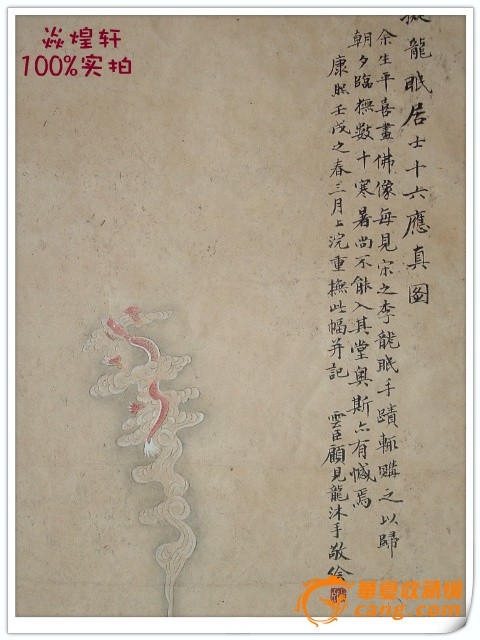 焱煌轩
100%实拍
龍眠居士十六應真圖
余生平喜畫佛像每見宋之李龍眠手蹟輒購之以歸
朝夕臨撫數十寒暑尚不能入其堂奧斯亦有憾焉
康熙壬戌之春三月上浣重撫此幅并記 雲臣顧見龍沐手敬繪
華夏收藏網
cang.com